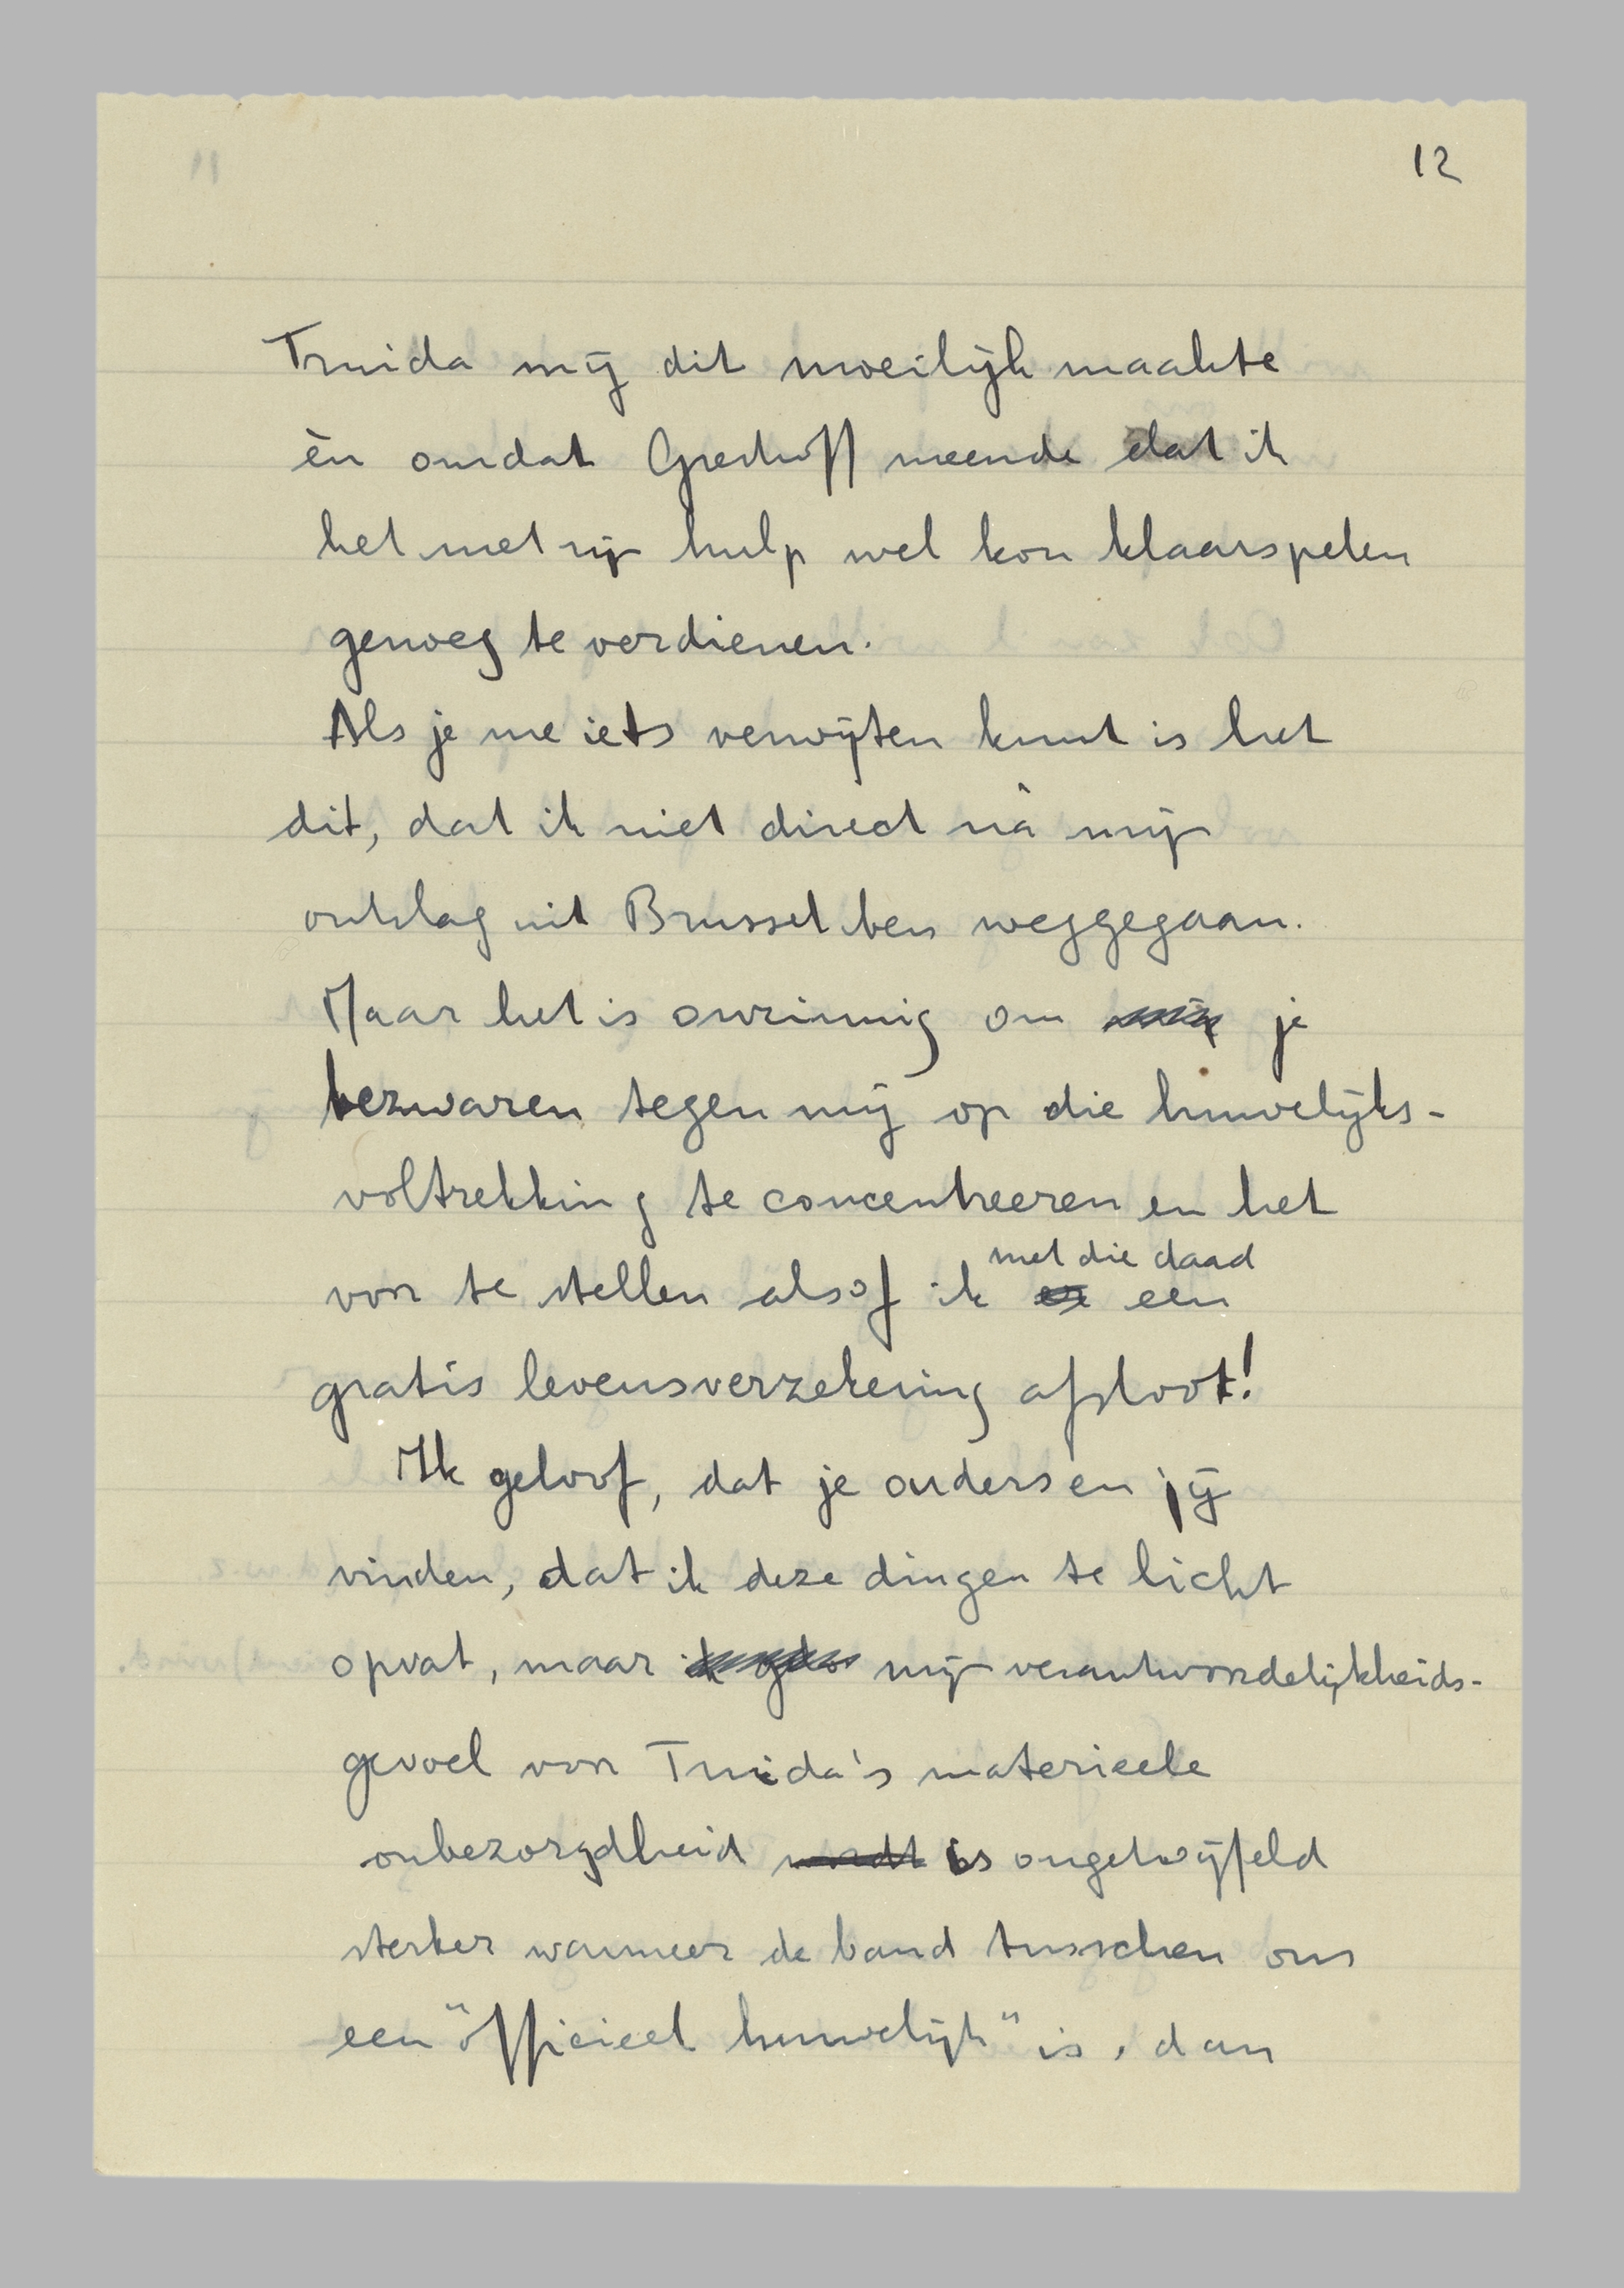 12
Truida mij dit moeilijk maakte
èn omdat Greshoff meende dat ik
het met zijn hulp wel kon klaarspelen
genoeg te verdienen.
Als je me iets verwijten kunt is het
dit, dat ik niet direct nà mijn
ontslag uit Brussel ben weggegaan.
Maar het is onzinnig om mijn je
bezwaren tegen mij op die huwelijks-
voltrekking te concentreeren en het
met die daad
voor te stellen alsof ik een
gratis levensverzekering afsloot!
Ik geloof, dat je ouders en jij
vinden, dat ik deze dingen te licht
opvat, maar mijn verantwoordelijkheids-
gevoel voor Truida's materieele
onbezorgdheid wordt is ongetwijfeld
sterker wanneer de band tusschen ons
een "officieel huwelijk" is, dan